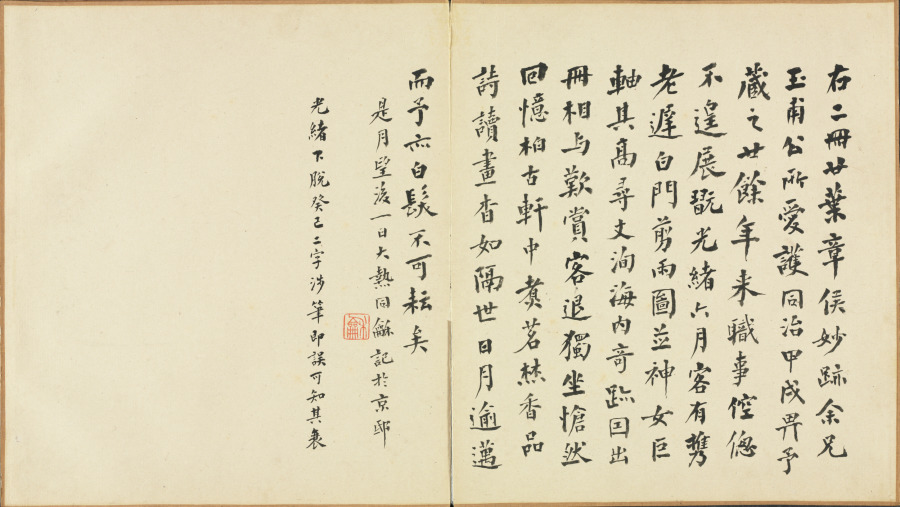 右二冊廿葉章侯妙跡余兄
玉甫公所愛護同治甲戌畀予
藏之廿餘年来職事倥傯
不遑展翫光緒六月客有攜
老遲白門剪雨圖並神女巨
軸其高尋丈洵海内竒跡因出
冊相与歎賞客退獨坐愴然
回憶柏古軒中煑茗焚香品
詩讀畫杳如隔世日月逾邁
而予亦白髮不可耘矣
是月望後一日大熱同龢記於京邸
光緒下脫癸巳二字涉筆即誤可知其衰